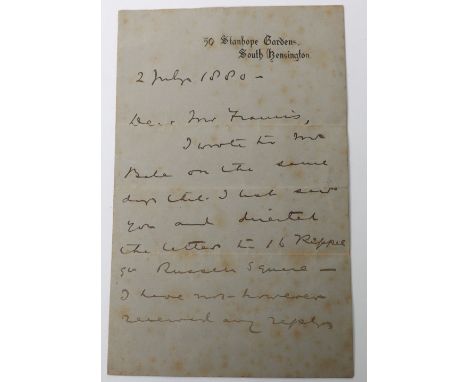 50 Stanhope Gardens,
South Kensington
2 July 1880 -
Dear Mr Francis,
I wrote to Mr
on the same
day that I last saw
you and directed
the letter to 16
Russell Square -
I have not however
received any reply